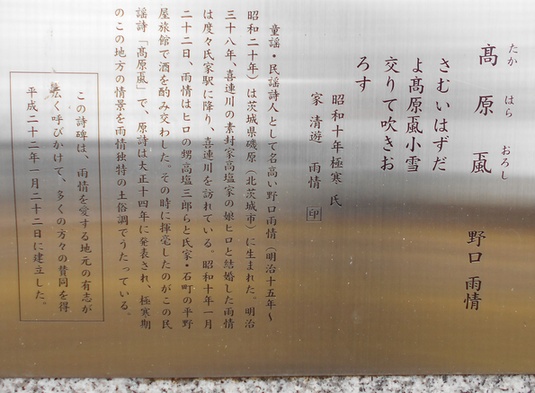 髙原颪
たか はら おろし
野口 雨情
さむいはずだ
よ髙原颪小雪
交りて吹きお
ろす
昭和十年極寒 氏
家 清遊 雨情 印
童謡・民謡詩人として名高い野口雨情（明治十五年～
昭和二十年）は茨城県磯原（北茨城市）に生まれた。明治
三十八年、喜連川の素封家高塩家の娘ヒロと結婚した雨情
は度々氏家駅に降り、喜連川を訪れている。昭和十年一月
二十二日、雨情はヒロの甥高塩三郎らと氏家・石町の平野
屋旅館で酒を酌み交わした。その時に揮毫したのがこの民
謡詩「髙原颪」で、原詩は大正十四年に発表され、極寒期
のこの地方の情景を雨情独特の土俗調でうたっている。
この詩碑は、雨情を愛する地元の有志が
広く呼びかけて、多くの方々の賛同を得
平成二十二年一月二十二日に建立した。